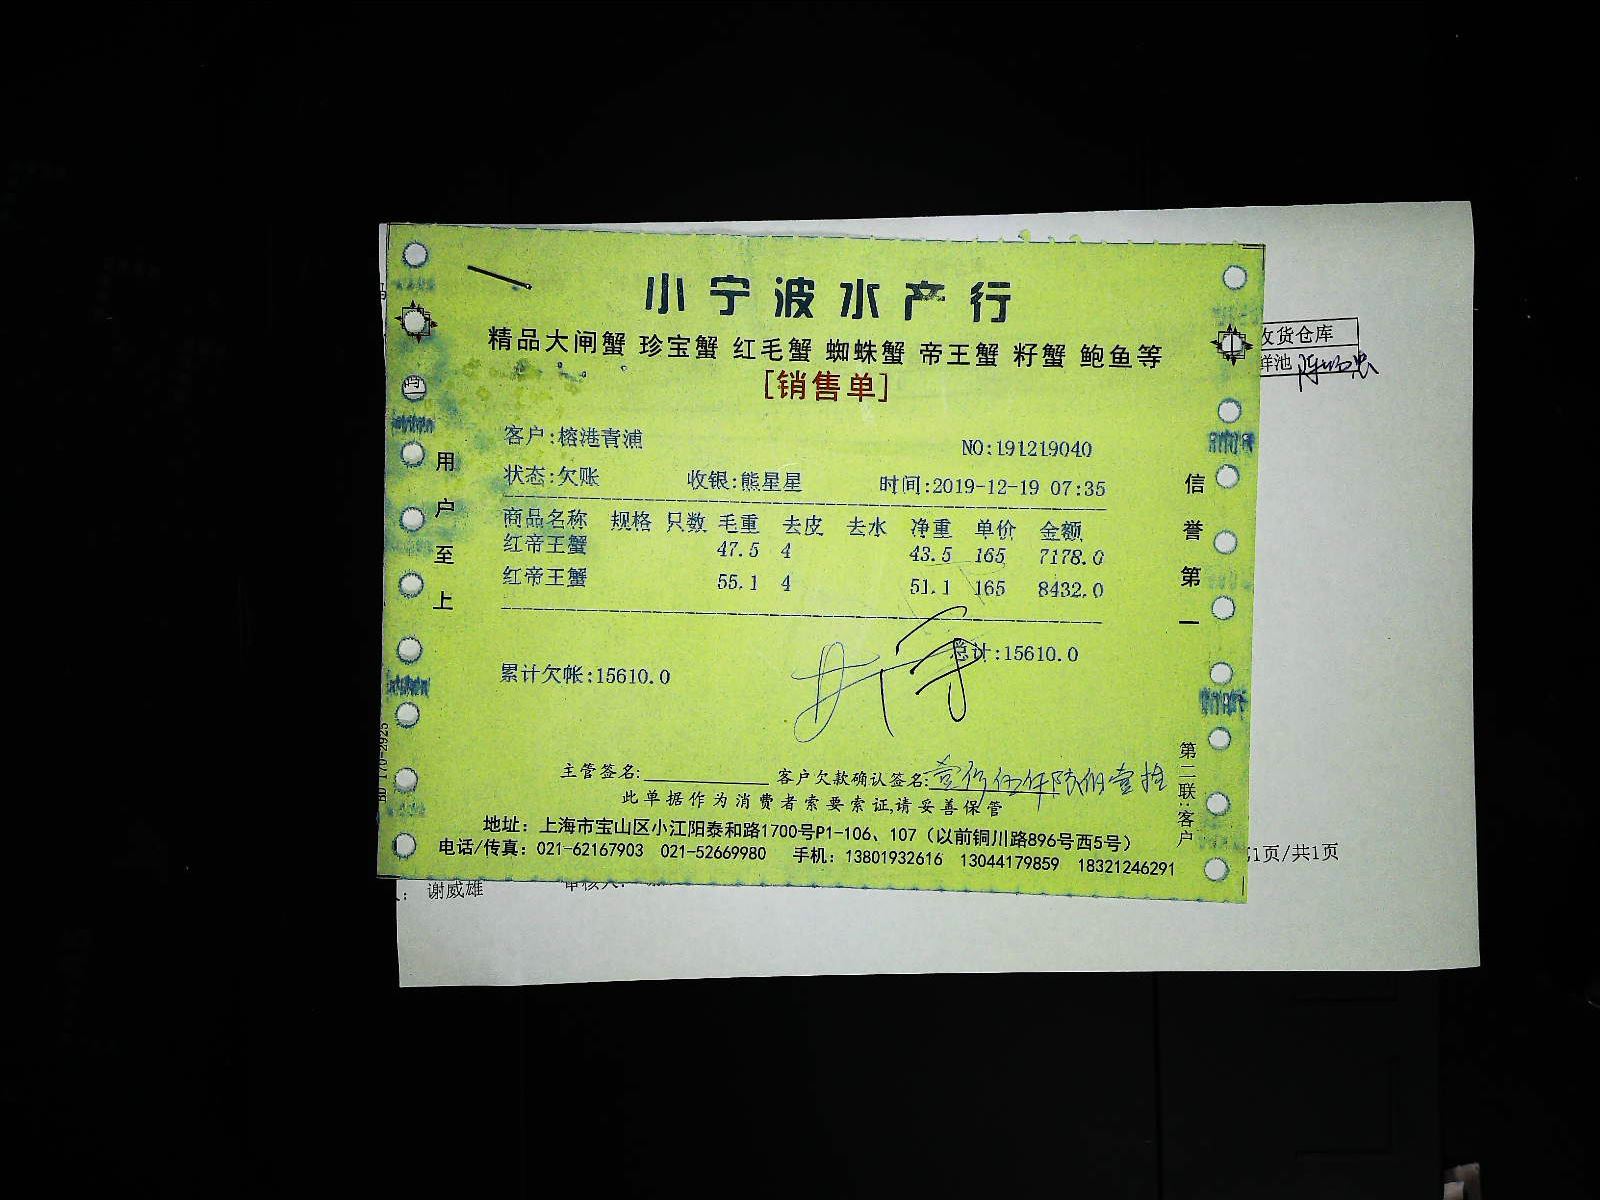 小宁波水产行
精品大闸蟹 珍宝蟹 红毛蟹 蜘蛛蟹 帝王蟹 籽蟹 鲍鱼等
[销售单]
客户:榕港青浦 NO:191219040
状态:欠账 收银:熊星星 时间:2019-12-19 07:35
商品名称 规格 只数 毛重 去皮 去水 净重 单价 金额
红帝王蟹 47.5 4 43.5 165 7178.0
红帝王蟹 55.1 4 51.1 165 8432.0
总计:15610.0
累计欠帐:15610.0
主管签名: 客户欠款确认签名:壹万伍仟陆佰壹拾
此单据作为消费者索要索证,请妥善保管
地址：上海市宝山区小江阳泰和路1700号P1-106、107（以前铜川路896号西5号）
电话/传真：021-62167903 021-52669980 手机：13801932616 13044179859 18321246291
用户至上
信誉第一
第二联:客户
收货仓库
鲜池
1页/共1页
谢威雄
审核人: